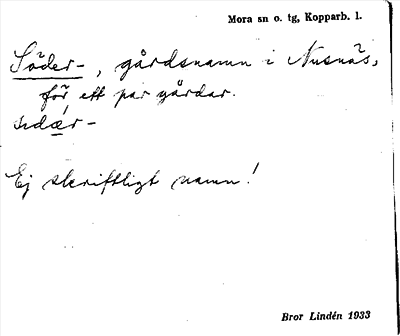 Mora sn o. tg, Kopparb. l.
Söder-, gårdsnamn i Nusnäs,
för ett par gårdar.
sıdær-
Ej skriftligt namn!
Bror Lindén 1933